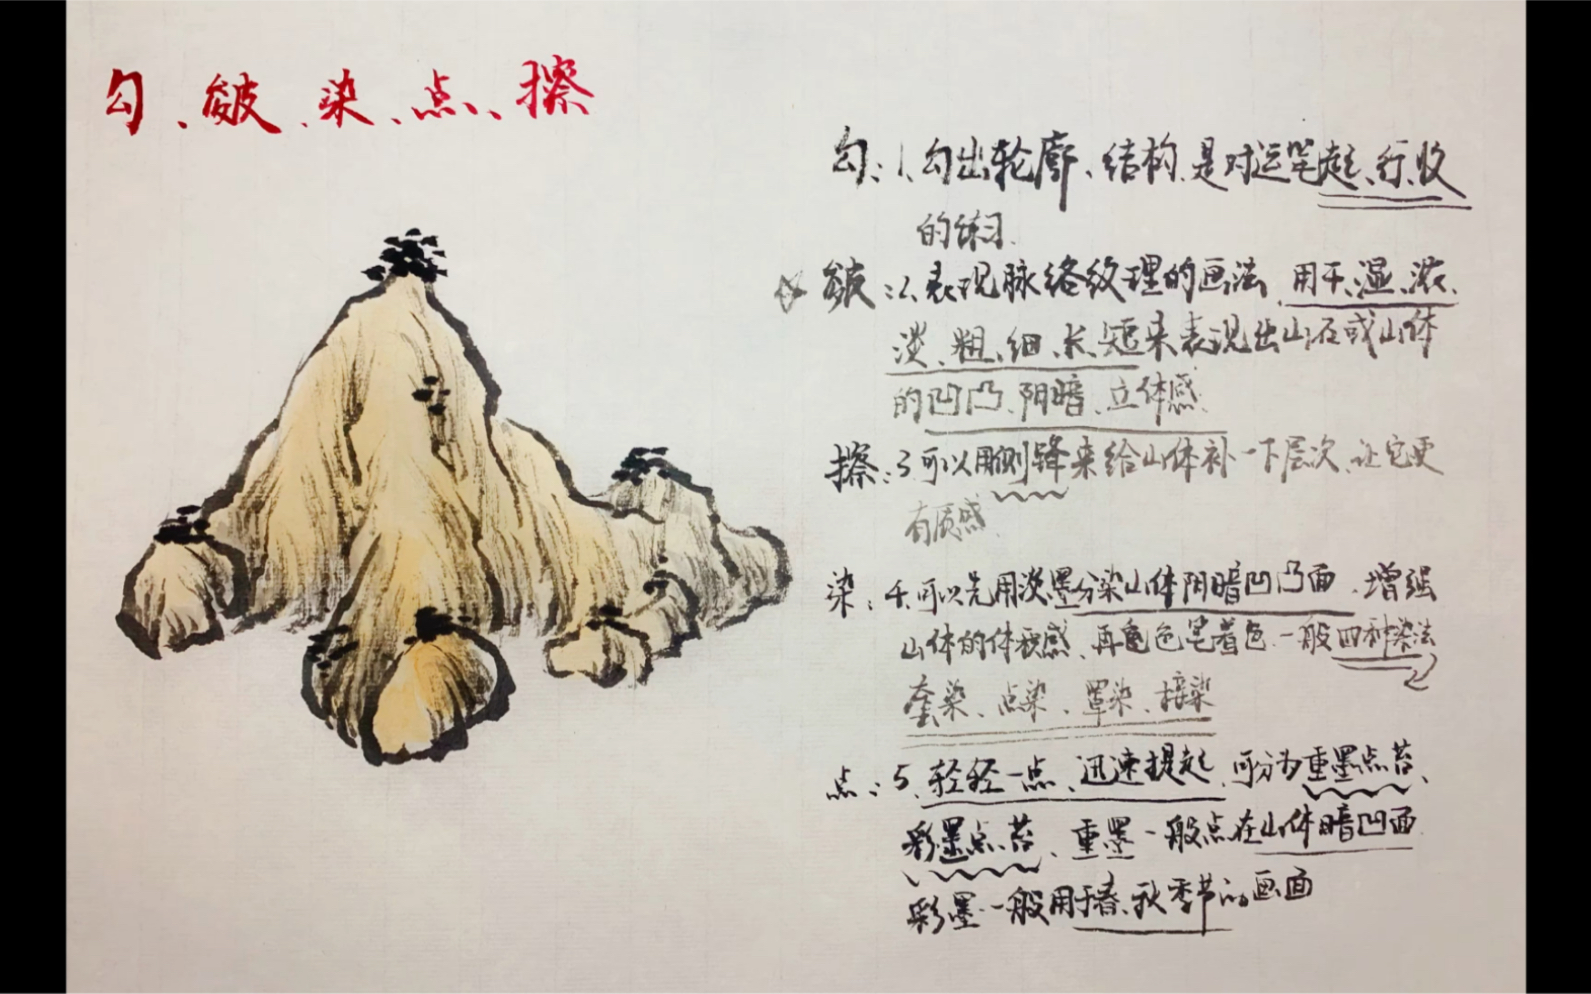 勾、皴、染、点、擦
勾:1、勾出轮廓、结构、是对运笔起、行、收
的练习.
皴:2、表现脉络纹理的画法、用干、湿、浓、
淡、粗、细、长、短来表现出山石或山体
的凹凸、阴暗、立体感、
擦:3、可以用侧锋来给山体补一下层次、让它更
有质感
染:4、可以先用淡墨分染山体阴暗凹凸面、增强
山体的体积感、再色笔着色.一般四种染法
套染、点染、罩染、接染
点:5、轻轻一点、迅速提起、可分为重墨点苔、
彩墨点苔、重墨一般点在山体暗凹面
彩墨一般用于春、秋季节的画面